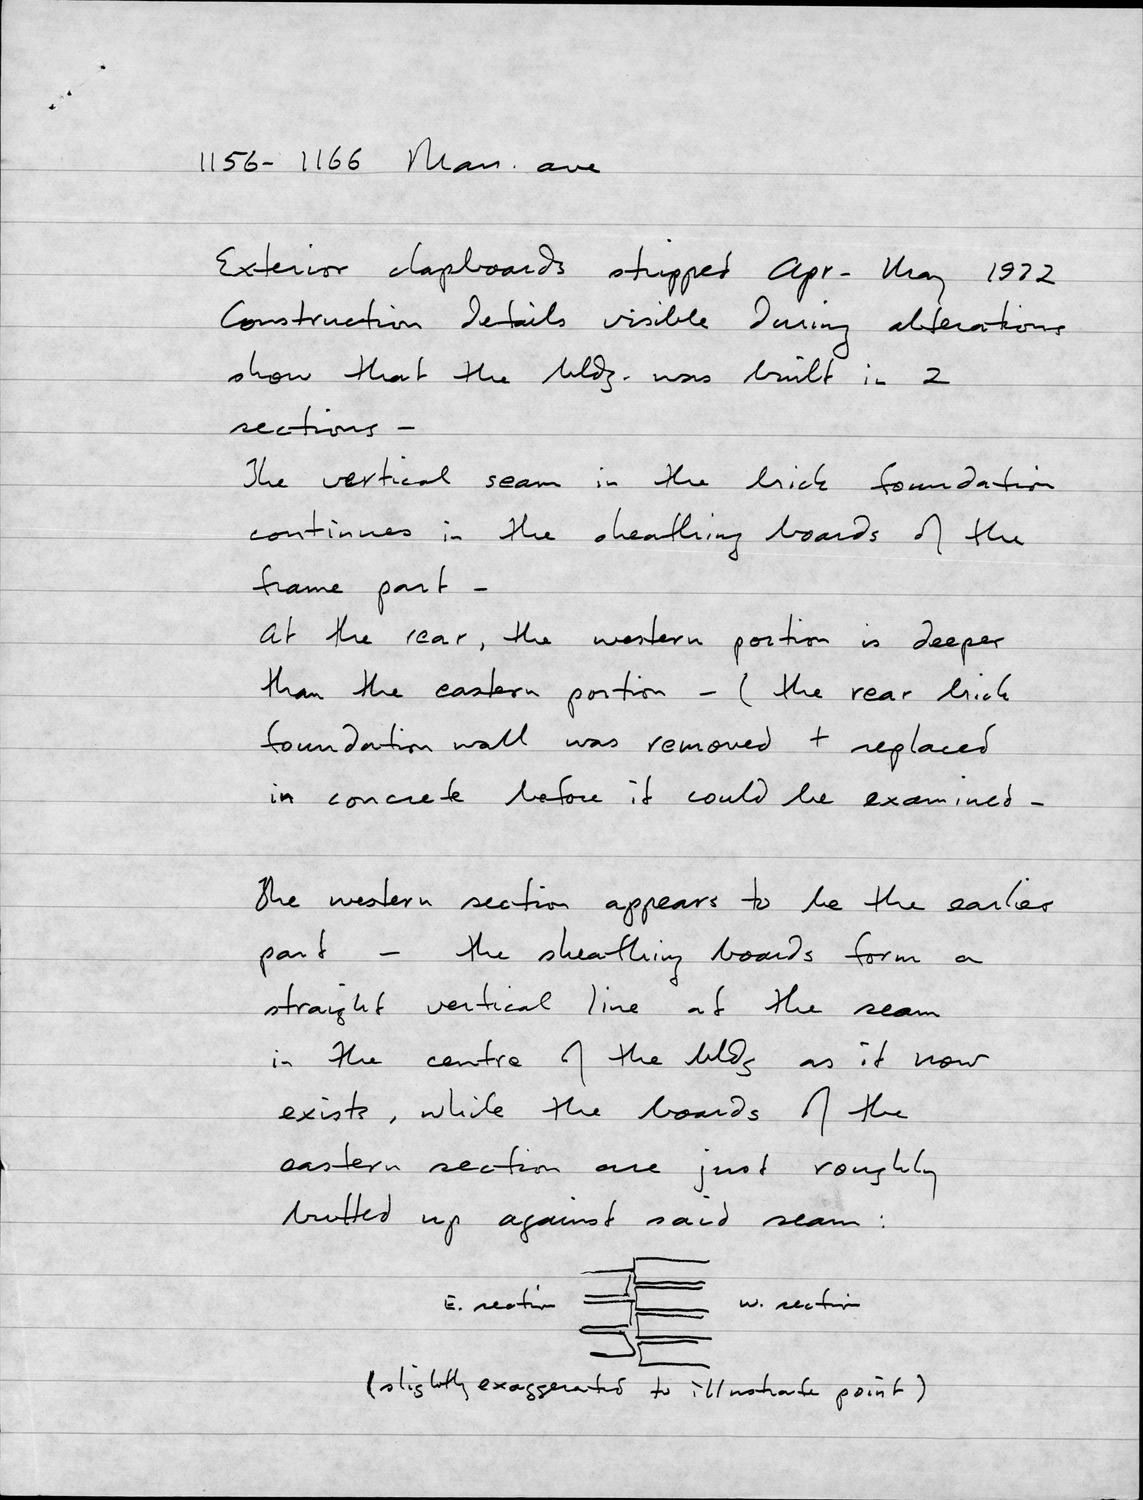 1156-1166 Man. ave
Exterior clapboards stripped Apr-May 1972
Construction details visible during alterations
show that the bldg. was built in 2
sections -
The vertical seam in the brick foundation
continues in the sheathing boards of the
frame part -
At the rear, the western portion is deeper
than the eastern portion - ( the rear brick
foundation wall was removed + replaced
in concrete before it could be examined -
The western section appears to be the earlier
part - the sheathing boards form a
straight vertical line at the seam
in the centre of the bldg as it now
exists, while the boards of the
eastern section are just roughly
butted up against said seam:
E. section W. section
(slightly exaggerated to illustrate point)